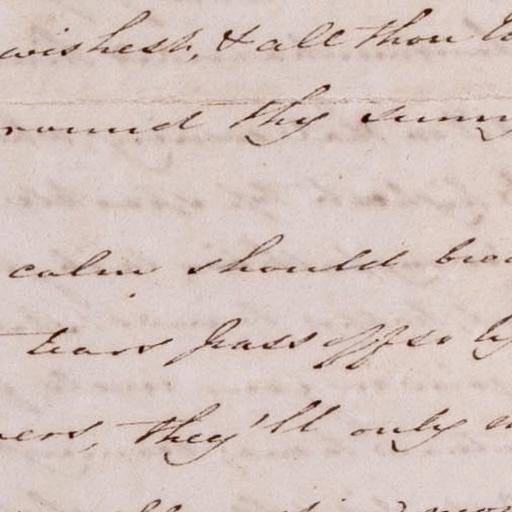 wishest, & all thou lo
round thy sunny
calm should brea
tears pass off so li
ers, they'll only m